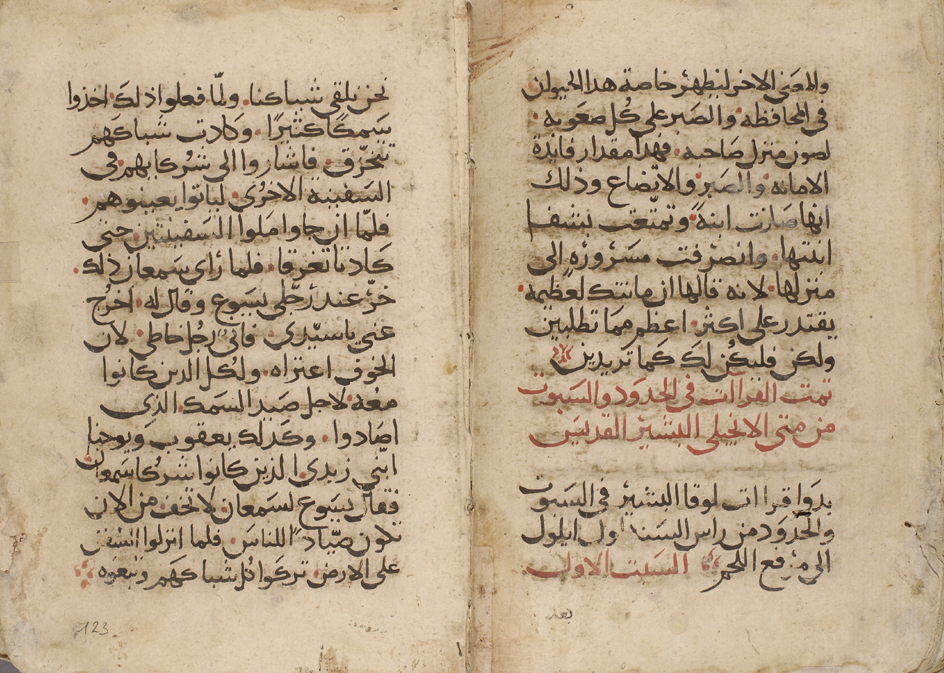 والمعني الاخر ليظهر خاصة هدا الحيوان
في المحافظه والصبر على كل صعوبه
لصون منزل صاحبه فهدا مقدار فايدة
الامانه والصبر والاتضاع وذلك
انها صارت ابنة وتمتعت بشفا
ابنتها وانصرفت مسرورة الى
منزلها لانه قال لها ان مانتك لعظيمه
يقتدر على اكثر اعظم مما تطلبين
ولكن فليكن لك كما تريدين
تمت القراات في الحدود والسبوت
من متى الانجيلي البشير القديس
بدو اقراات لوقا البشير في السبوت
والحدود من راس السنة اول ايلول
الى مرفع اللحم السبت الاول
بعد
نحن نلقي شباكنا ولما فعلوا ذلك اخذوا
سمكا كثيرا وكادت شباكهم
تتخرق فاشاروا الى شركايهم في
السفينة الاخرى لياتوا يعينوهم
فلما ان جاوا ملوا السفينتين حتى
كادتا تغرقا فلما راى سمعان ذلك
خر عند رجلي يسوع وقال له اخرج
عني ياسيدي فاني رجل خاطي لان
الخوف اعتراه ولكل الدين كانوا
معه لاجل صيد السمك الذي
اصادوا وكدلك يعقوب ويوحنا
ابني زبدي الذين كانوا شركا سمعان
فقال يسوع لسمعان لا تخف من الان
تكون صيادا للناس فلما انزلوا السفن
على الارض تركوا كل شباكهم وتبعوه
123